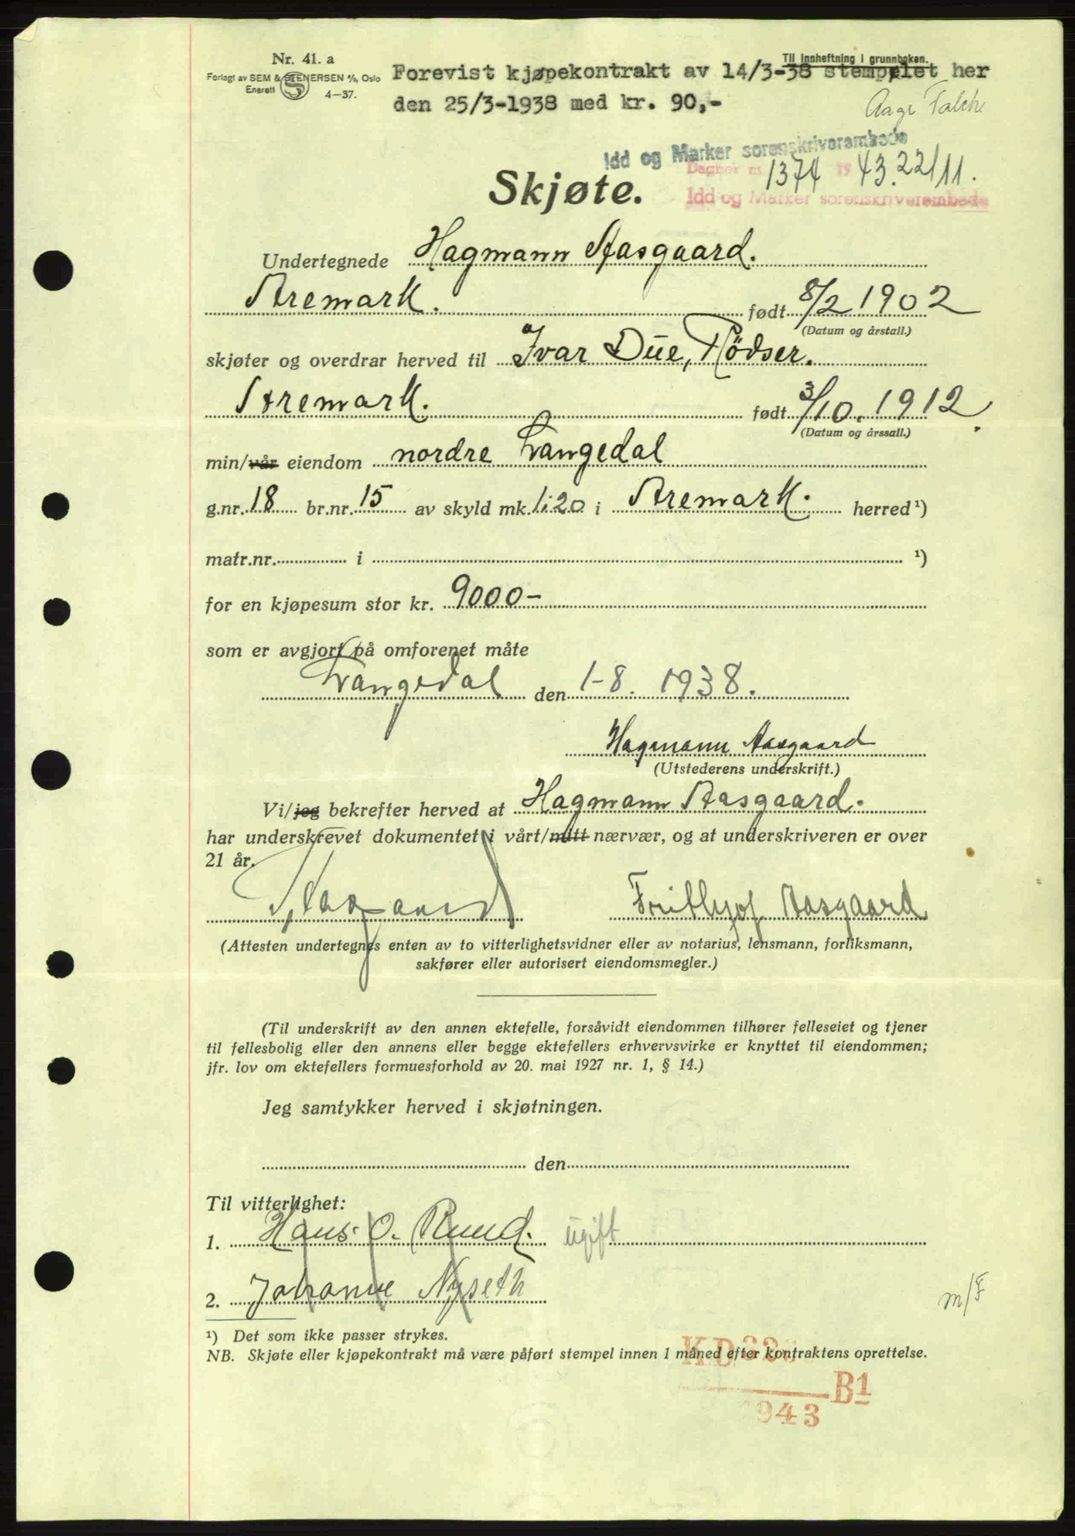 Nr. 41. a
Forlagt av SEM & STENERSEN A/S, Oslo
Enerett 4-37.
Til innheftning i grunnboken.
Forevist kjøpekontrakt av 14/3-38 stemplet her
den 25/3-1938 med kr. 90,-
Aage Falche
Idd og Marker sorenskriverembede
Dagbok nr. 1374 1943. 22/11.
Idd og Marker sorenskriverembede
Skjøte.
Undertegnede Hagmann Aasgaard.
Aremark. født 8/2 1902
(Datum og årstall.)
skjøter og overdrar herved til Ivar Due, Rødser.
Aremark. født 3/10. 1912.
(Datum og årssall.)
min/vår eiendom nordre Langedal
g.nr. 18 br.nr. 15 av skyld mk. 1.20 i Aremark. herred ¹)
matr.nr. i ¹)
for en kjøpesum stor kr. 9000-
som er avgjort på omforenet måte
Langedal den 1-8. 1938.
Hagmann Aasgaard
(Utstederens underskrift.)
Vi/jeg bekrefter herved at Hagmann Aasgaard.
har underskrevet dokumentet i vårt/mitt nærvær, og at underskriveren er over
21 år.
Aasgaard Frithjof Aasgaard
(Attesten undertegnes enten av to vitterlighetsvidner eller av notarius, lensmann, forliksmann,
sakfører eller autorisert eiendomsmegler.)
(Til underskrift av den annen ektefelle, forsåvidt eiendommen tilhører felleseiet og tjener
til fellesbolig eller den annens eller begge ektefellers erhvervsvirke er knyttet til eiendommen;
jfr. lov om ektefellers formuesforhold av 20. mai 1927 nr. 1, § 14.)
Jeg samtykker herved i skjøtningen.
den
Til vitterlighet:
1. Hans O. Ruud. ugift
2. Johanne Nyseth
m/F
¹) Det som ikke passer strykes.
NB. Skjøte eller kjøpekontrakt må være påført stempel innen 1 måned efter kontraktens oprettelse.
KD
B1
1943